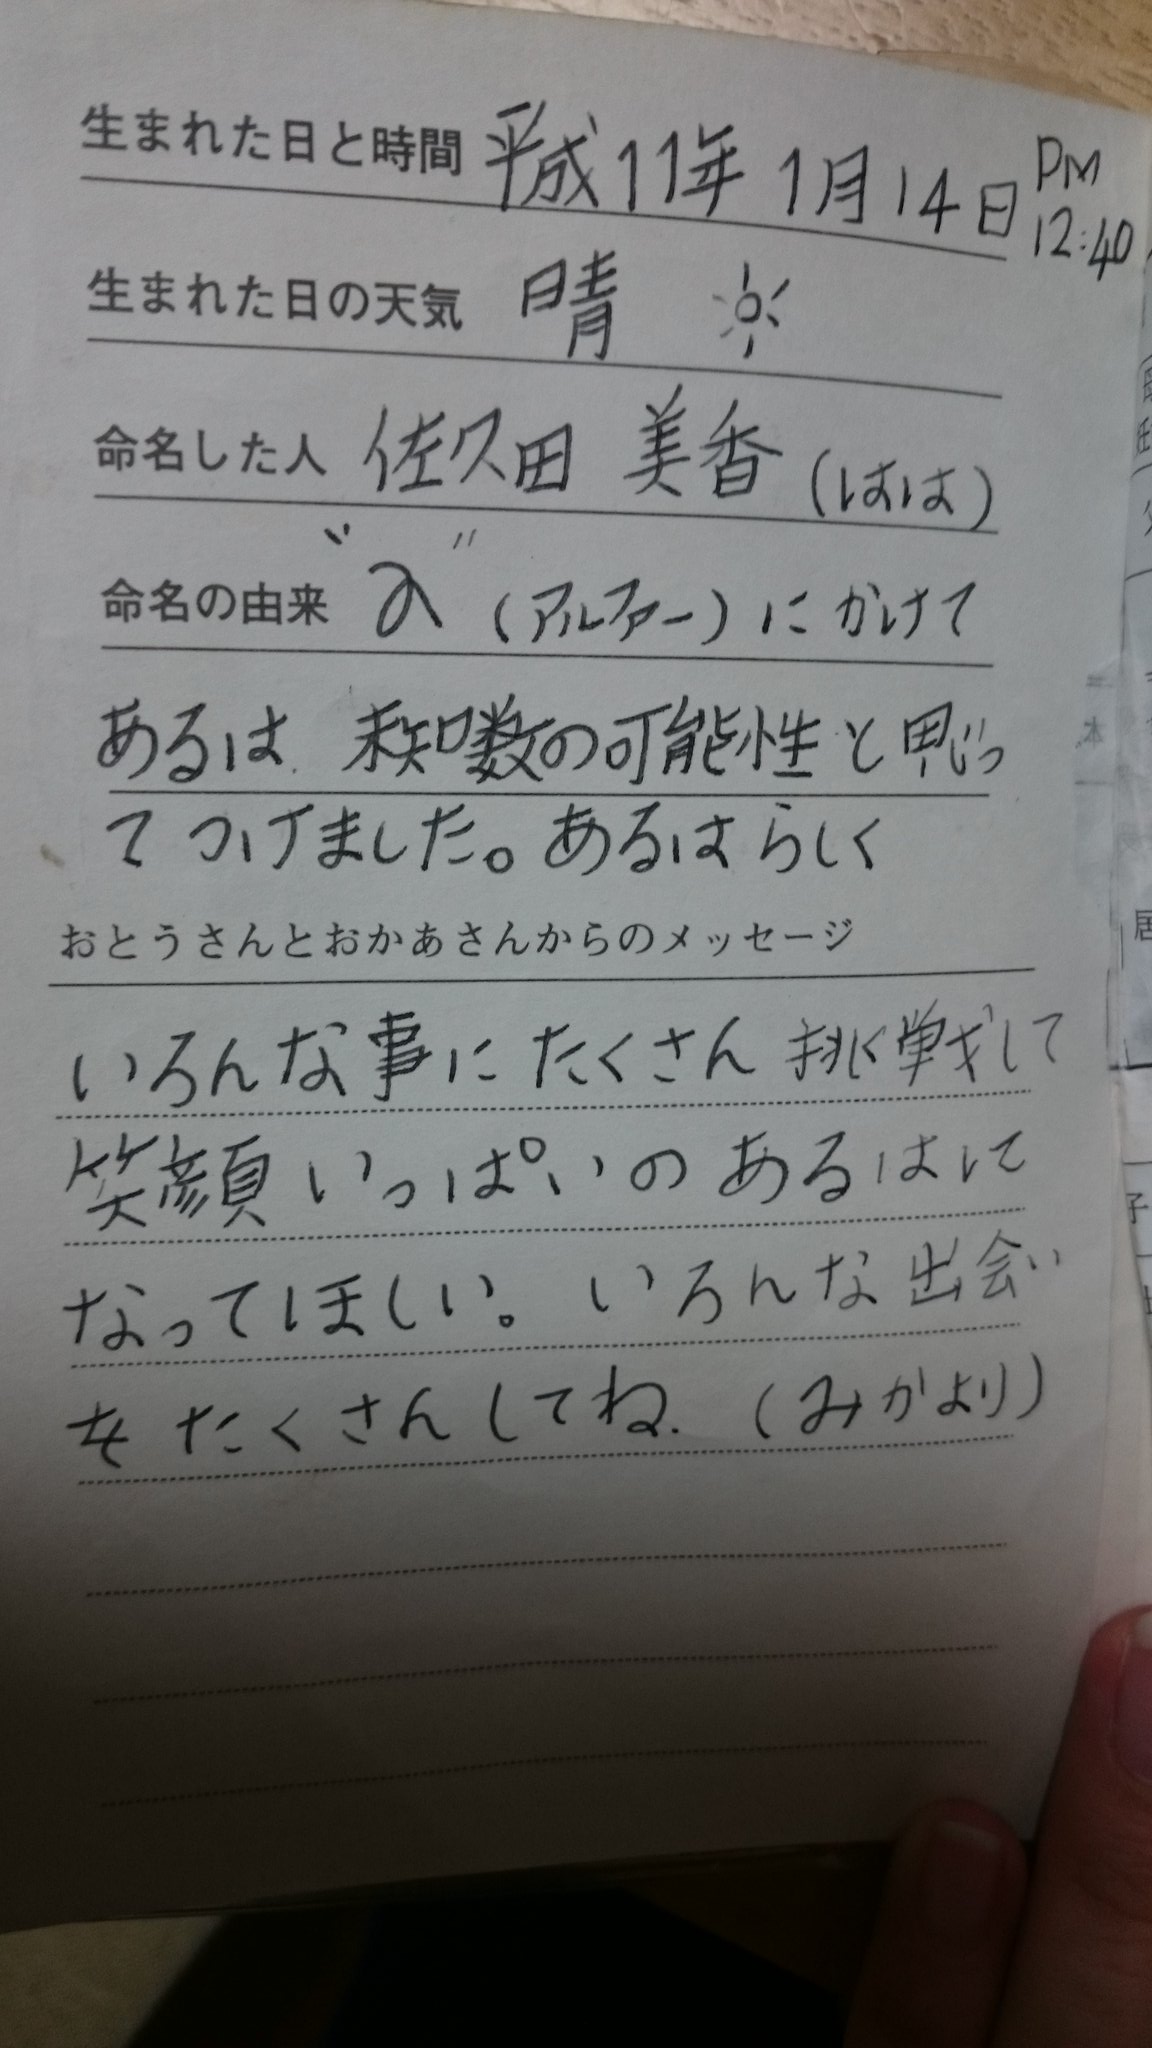 生まれた日と時間 平成11年1月14日 PM 12:40
生まれた日の天気 晴
命名した人 佐久田 美香 (はは)
命名の由来 "α" (アルファー)にかけて
あるは、未知数の可能性と思っ
てつけました。あるはらしく
おとうさんとおかあさんからのメッセージ
いろんな事にたくさん挑戦して
笑顔いっぱいのあるはにて
なってほしい。いろんな出会い
をたくさんしてね。(みかより)
本
居
子